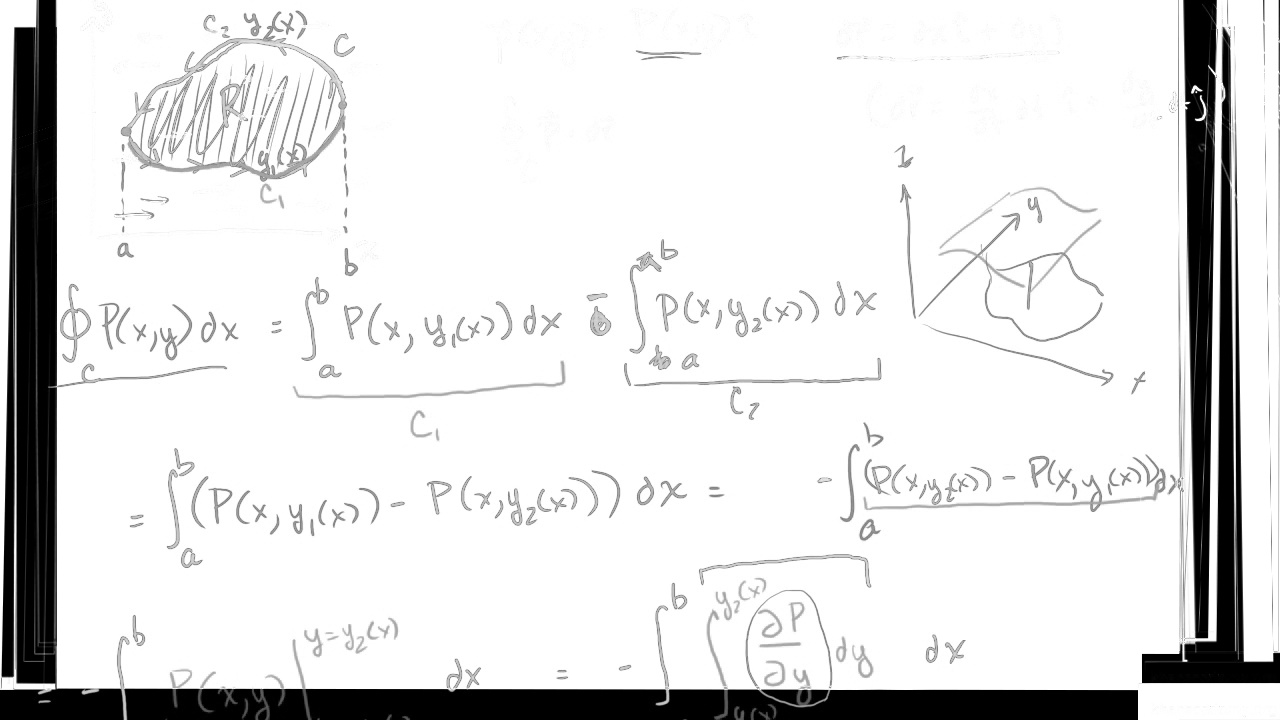 C₂ y₂(x) C
R
y₁(x)
C₁
a b
y
∮_C P(x,y) dx = ∫_a^b P(x, y₁(x)) dx − ∫_a^b P(x, y₂(x)) dx
C₁ C₂
= ∫_a^b (P(x, y₁(x)) − P(x, y₂(x))) dx = − ∫_a^b (P(x, y₂(x)) − P(x, y₁(x))) dx
= − ∫^b P(x,y) |^{y=y₂(x)} dx = − ∫^b ∫_{y₁(x)}^{y₂(x)} ∂P/∂y dy dx